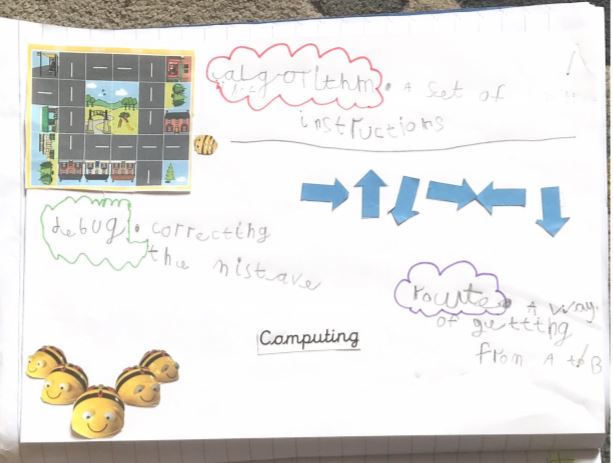 algorithm. A set of
instructions
debug. correcting
the nistave
route. A way
of gettting
from A to B
Computing